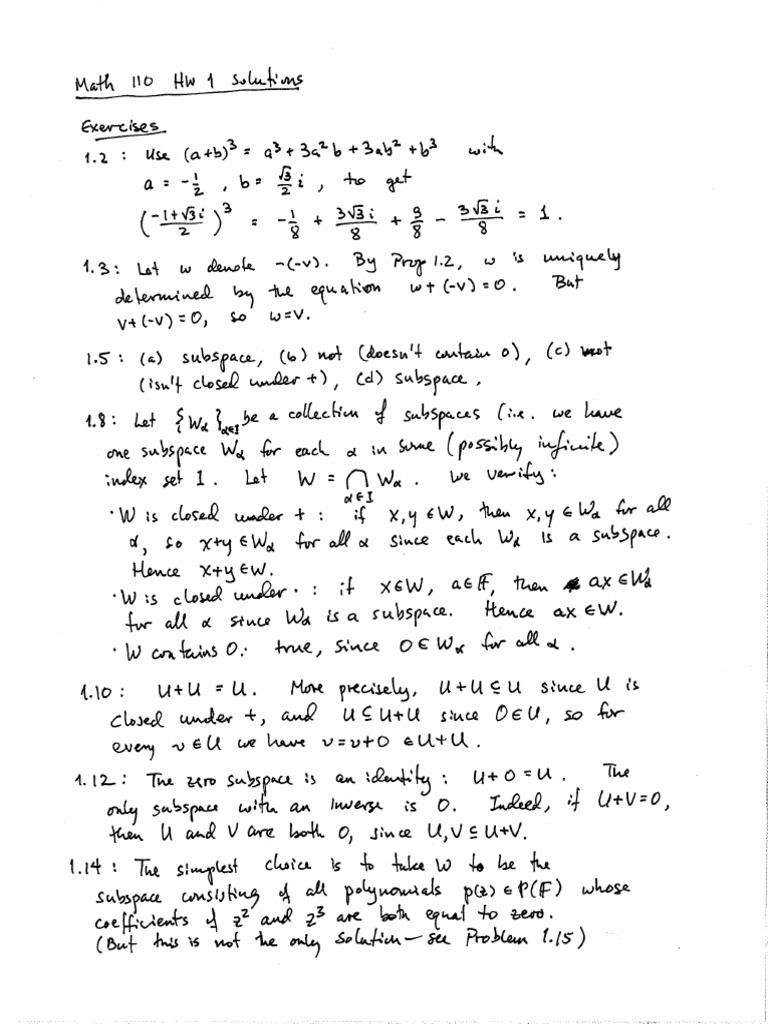 Math 110 HW 1 Solutions
Exercises
1.2 : Use (a+b)³ = a³ + 3a²b + 3ab² + b³ with
a = -1/2 , b = √3/2 i , to get
((-1+√3i)/2)³ = -1/8 + 3√3i/8 + 9/8 - 3√3i/8 = 1.
1.3 : Let w denote -(-v). By Prop 1.2, w is uniquely
determined by the equation w+(-v)=0. But
v+(-v)=0, so w=v.
1.5 : (a) subspace, (b) not (doesn't contain 0), (c) not
(isn't closed under +), (d) subspace.
1.8 : Let {Wα}α∈I be a collection of subspaces (i.e. we have
one subspace Wα for each α in some (possibly infinite)
index set I. Let W = ⋂α∈I Wα. We verify:
• W is closed under + : if x,y ∈ W, then x,y ∈ Wα for all
α, so x+y ∈ Wα for all α since each Wα is a subspace.
Hence x+y ∈ W.
• W is closed under · : if x∈W, a∈𝔽, then ax ∈ Wα
for all α since Wα is a subspace. Hence ax ∈ W.
• W contains 0: true, since 0 ∈ Wα for all α.
1.10 : U+U = U. More precisely, U+U ⊆ U since U is
closed under +, and U ⊆ U+U since 0∈U, so for
every v∈U we have v=v+0 ∈ U+U.
1.12 : The zero subspace is an identity: U+0=U. The
only subspace with an inverse is 0. Indeed, if U+V=0,
then U and V are both 0, since U,V ⊆ U+V.
1.14 : The simplest choice is to take W to be the
subspace consisting of all polynomials p(z) ∈ P(𝔽) whose
coefficients of z² and z³ are both equal to zero.
(But this is not the only solution — see Problem 1.15)